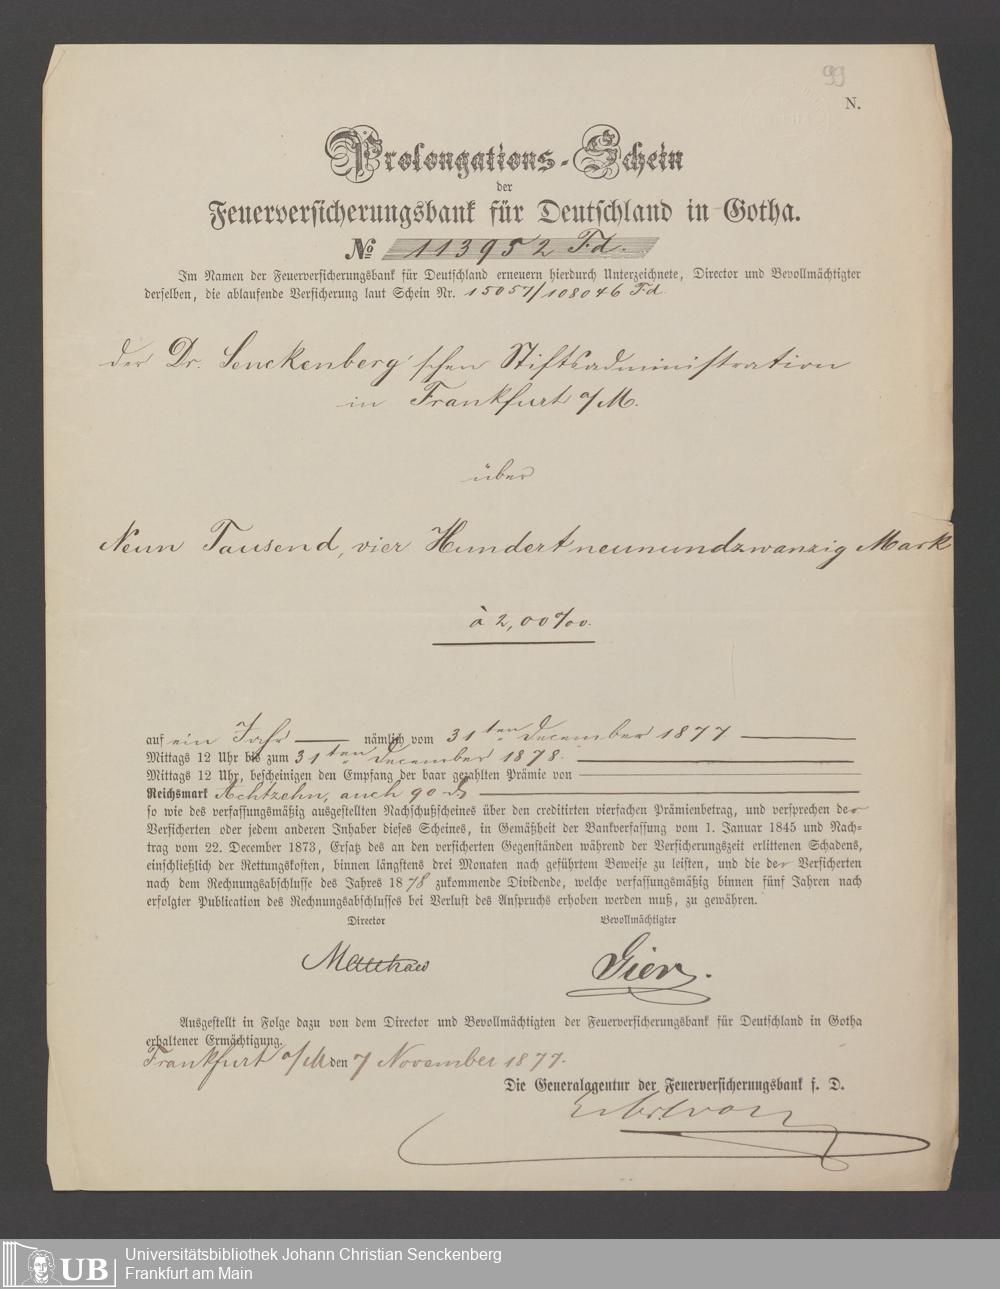 99
N.
Prolongations-Schein
der
Feuerversicherungsbank für Deutschland in Gotha.
No 113952 Fd.
Im Namen der Feuerversicherungsbank für Deutschland erneuern hierdurch Unterzeichnete, Director und Bevollmächtigter
derselben, die ablaufende Versicherung laut Schein Nr. 15057/108046 Fd.
der Dr. Senckenberg'schen Stiftsadministration
in Frankfurt a/M.
über
Neun Tausend, vier Hundertneunundzwanzig Mark
à 2,00 ‰.
auf ein Jahr nämlich vom 31ten December 1877
Mittags 12 Uhr bis zum 31ten December 1878.
Mittags 12 Uhr, bescheinigen den Empfang der baar gezahlten Prämie von
Reichsmark Achtzehn, auch 90 ₰
so wie des verfassungsmäßig ausgestellten Nachschußscheines über den creditirten vierfachen Prämienbetrag, und versprechen der
Versicherten oder jedem anderen Inhaber dieses Scheines, in Gemäßheit der Bankverfassung vom 1. Januar 1845 und Nach-
trag vom 22. December 1873, Ersatz des an den versicherten Gegenständen während der Versicherungszeit erlittenen Schadens,
einschließlich der Rettungskosten, binnen längstens drei Monaten nach geführtem Beweise zu leisten, und die der Versicherten
nach dem Rechnungsabschlusse des Jahres 1878 zukommende Dividende, welche verfassungsmäßig binnen fünf Jahren nach
erfolgter Publication des Rechnungsabschlusses bei Verlust des Anspruchs erhoben werden muß, zu gewähren.
Director Bevollmächtigter
Ausgestellt in Folge dazu von dem Director und Bevollmächtigten der Feuerversicherungsbank für Deutschland in Gotha
erhaltener Ermächtigung.
Frankfurt a/M den 7 November 1877.
Die Generalagentur der Feuerversicherungsbank f. D.
UB
Universitätsbibliothek Johann Christian Senckenberg
Frankfurt am Main